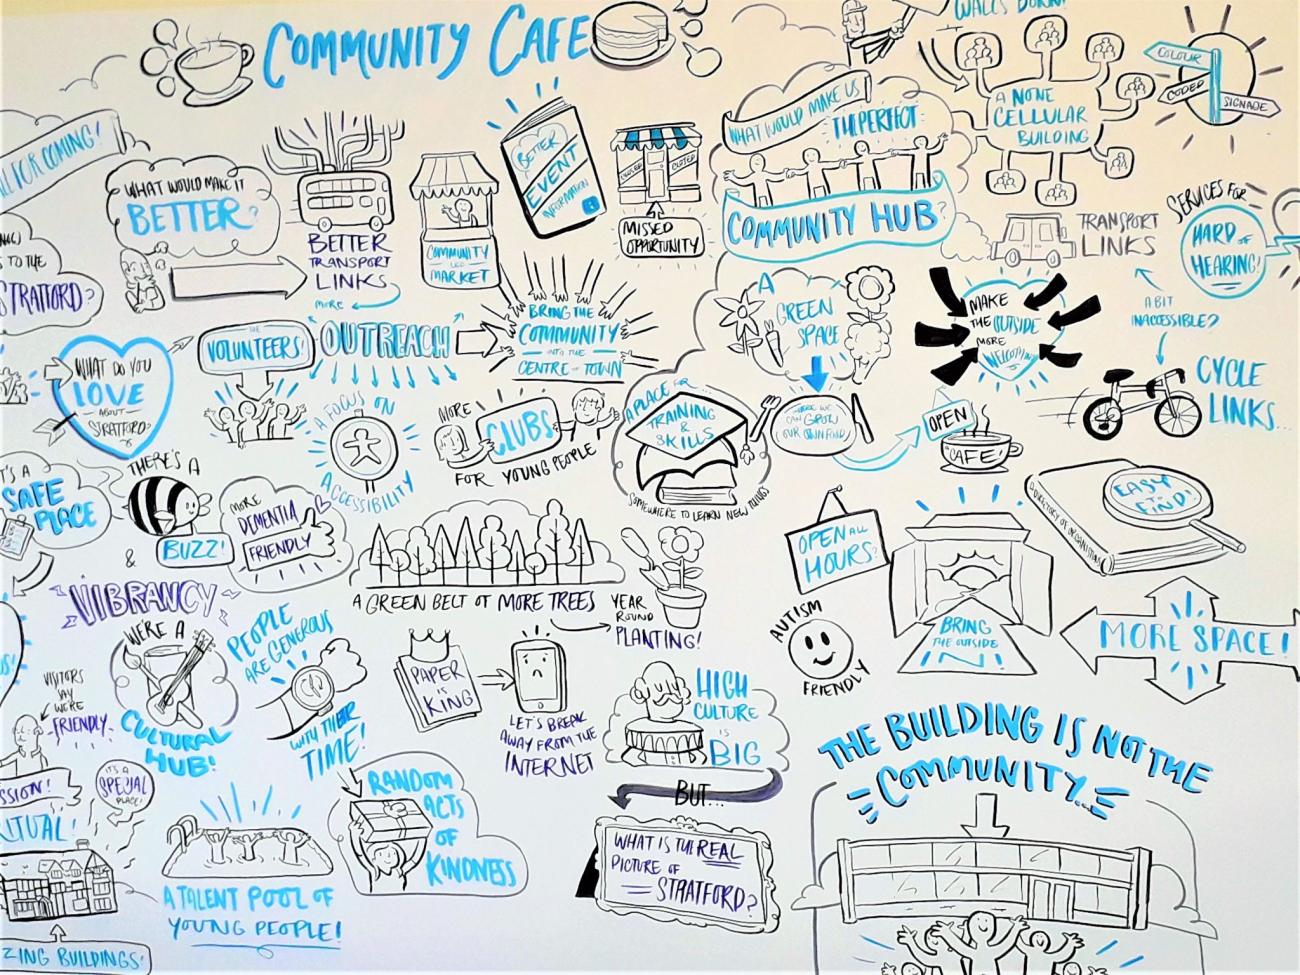 COMMUNITY CAFE
WALLS DOWN!
FOR COMING!
WHAT WOULD MAKE IT
BETTER?
BETTER
TRANSPORT
LINKS
MORE
COMMUNITY
LED
MARKET
BETTER
EVENT
INFORMATION
i
CLOSED
CLOSED
MISSED
OPPORTUNITY
WHAT WOULD MAKE US
THE PERFECT
COMMUNITY HUB?
A NONE
CELLULAR
BUILDING
COLOUR
CODED
SIGNAGE
TRANSPORT
LINKS
SERVICES FOR
HARD OF
HEARING!
A BIT
INACCESSIBLE?
CYCLE
LINKS...
S TO THE
STRATFORD?
WHAT DO YOU
LOVE
ABOUT
STRATFORD?
THE
VOLUNTEERS!
OUTREACH
BRING THE
COMMUNITY
INTO THE
CENTRE OF TOWN
A
GREEN
SPACE
MAKE
THE OUTSIDE
MORE
WELCOMING
A FOCUS ON
ACCESSIBILITY
MORE
CLUBS
FOR YOUNG PEOPLE
A PLACE FOR
TRAINING
&
SKILLS
SOMEWHERE TO LEARN NEW THINGS
WHERE WE
CAN GROW
OUR OWN FOOD
OPEN
CAFE!
IT'S A
SAFE
PLACE
THERE'S A
BUZZ!
&
VIBRANCY
MORE
DEMENTIA
FRIENDLY
A GREEN BELT OF MORE TREES
YEAR
ROUND
PLANTING!
OPEN ALL
HOURS?
A DIRECTORY OF ORGANISATIONS
EASY
TO
FIND!
AUTISM
FRIENDLY
BRING
THE OUTSIDE
IN!
MORE SPACE!
VISITORS
SAY
WE'RE
FRIENDLY
WE'RE A
CULTURAL
HUB!
PEOPLE
ARE GENEROUS
WITH THEIR
TIME!
PAPER
IS
KING
LET'S BREAK
AWAY FROM THE
INTERNET
HIGH
CULTURE
IS
BIG
BUT...
WHAT IS THE REAL
PICTURE OF
STRATFORD?
THE BUILDING IS NOT THE
COMMUNITY...
SSION!
IT'S A
SPECIAL
PLACE!
A TALENT POOL OF
YOUNG PEOPLE!
RANDOM
ACTS
OF
KINDNESS
ZING BUILDINGS!